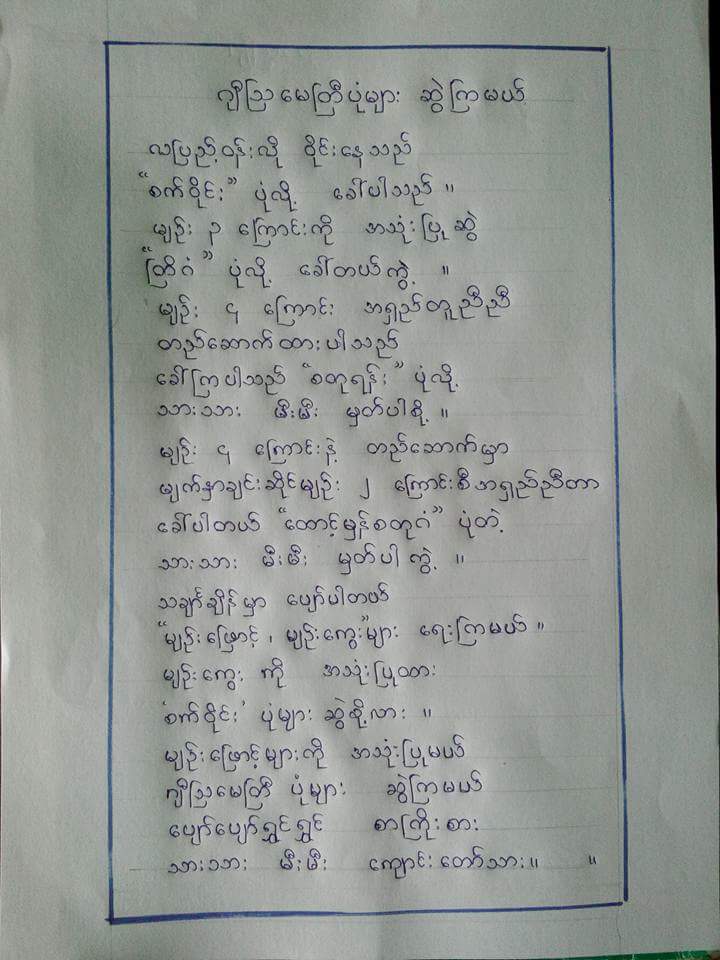 ဂျီဩမေတြီပုံများ ဆွဲကြမယ်
လပြည့်ဝန်းလို ဝိုင်းနေသည်
"စက်ဝိုင်း" ပုံလို့ ခေါ်ပါသည် ။
မျဉ်း ၃ ကြောင်းကို အသုံးပြု ဆွဲ
"တြိဂံ" ပုံလို့ ခေါ်တယ်ကွဲ့ ။
မျဉ်း ၄ ကြောင်း အရှည်တူညီညီ
တည်ဆောက်ထားပါသည်
ခေါ်ကြပါသည် "စတုရန်း" ပုံလို့
သားသား မီးမီး မှတ်ပါစို့ ။
မျဉ်း ၄ ကြောင်းနဲ့ တည်ဆောက်မှာ
မျက်နှာချင်းဆိုင်မျဉ်း ၂ ကြောင်းစီအရှည်ညီတာ
ခေါ်ပါတယ် "ထောင့်မှန်စတုဂံ" ပုံတဲ့
သားသား မီးမီး မှတ်ပါ ကွဲ့ ။
သင်္ချာချိန်မှာ ပျော်ပါတယ်
"မျဉ်းဖြောင့် ၊ မျဉ်းကွေး"များ ရေးကြမယ် ။
မျဉ်းကွေး ကို အသုံးပြုထား
'စက်ဝိုင်း' ပုံများ ဆွဲစို့လား ။
မျဉ်းဖြောင့်များကို အသုံးပြုမယ်
ဂျီဩမေတြီ ပုံများ ဆွဲကြမယ်
ပျော်ပျော်ရွှင်ရွှင် စာကြိုးစား
သားသား မီးမီး ကျောင်းတော်သား ။ ။